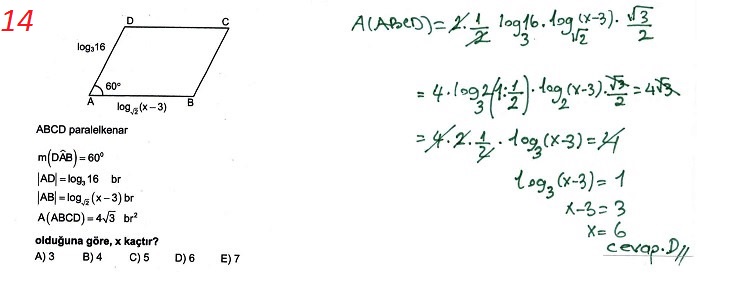 14
D C
log₃16
60°
A B
log_√2(x−3)
ABCD paralelkenar
m(DÂB) = 60°
|AD| = log₃ 16 br
|AB| = log_√2 (x−3) br
A(ABCD) = 4√3 br²
olduğuna göre, x kaçtır?
A) 3 B) 4 C) 5 D) 6 E) 7
A(ABCD) = 2·1/2 log₃16 · log_√2(x−3) · √3/2
= 4·log₃2 (1:1/2) · log₂(x−3)·√3/2 = 4√3
= 4·2·1/2 · log₃(x−3) = 4
log₃(x−3) = 1
x−3 = 3
x = 6
cevap·D//